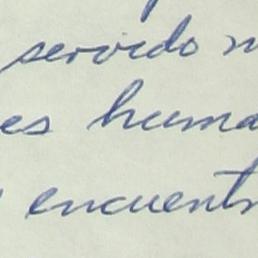 servido
es huma
encuent